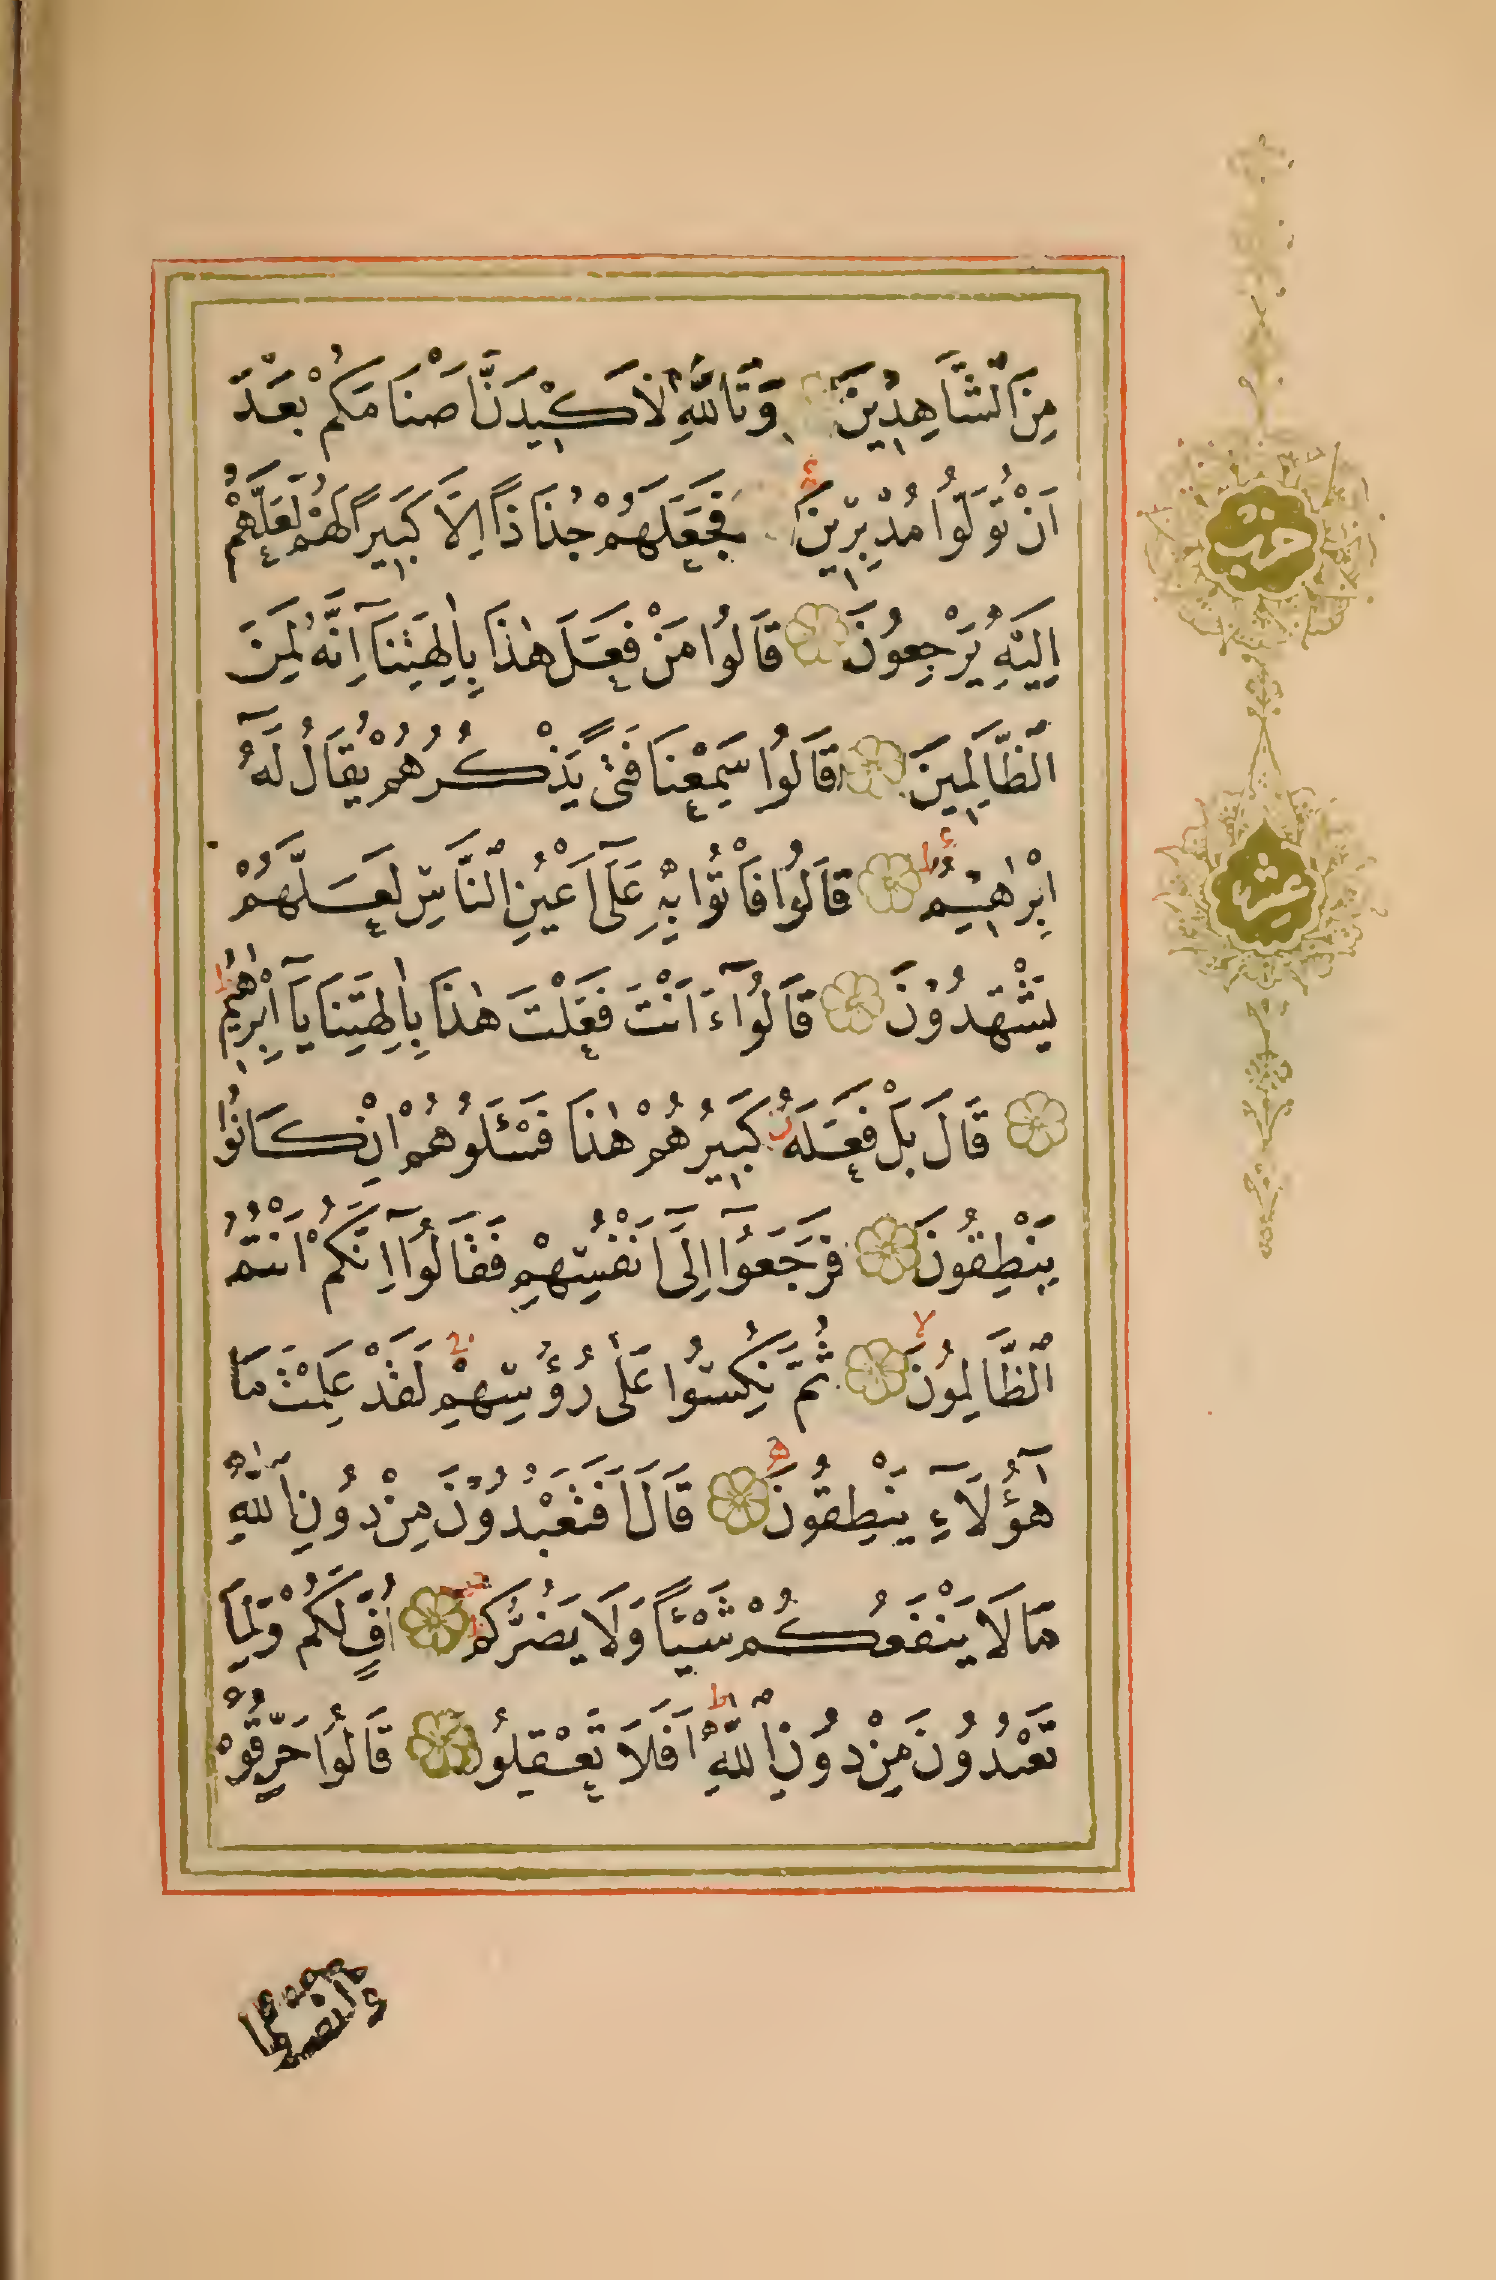 مِنَ الشَّاهِدِينَ وَتَاللّٰهِ لَاَكِيدَنَّ اَصْنَامَكُمْ بَعْدَ
اَنْ تُوَلُّوا مُدْبِرِينَ فَجَعَلَهُمْ جُذَاذًا اِلَّا كَبِيرًا لَهُمْ لَعَلَّهُمْ
اِلَيْهِ يَرْجِعُونَ قَالُوا مَنْ فَعَلَ هٰذَا بِاٰلِهَتِنَا اِنَّهُ لَمِنَ
الظَّالِمِينَ قَالُوا سَمِعْنَا فَتًى يَذْكُرُهُمْ يُقَالُ لَهُ
اِبْرٰهِيمُ ط قَالُوا فَأْتُوا بِهِ عَلٰٓى اَعْيُنِ النَّاسِ لَعَلَّهُمْ
يَشْهَدُونَ قَالُوٓا ءَاَنْتَ فَعَلْتَ هٰذَا بِاٰلِهَتِنَا يَٓا اِبْرٰهِيمُ ط
قَالَ بَلْ فَعَلَهُ كَبِيرُهُمْ هٰذَا فَسْـَٔلُوهُمْ اِنْ كَانُوا
يَنْطِقُونَ فَرَجَعُوٓا اِلٰٓى اَنْفُسِهِمْ فَقَالُوٓا اِنَّكُمْ اَنْتُمُ
الظَّالِمُونَ لا ثُمَّ نُكِسُوا عَلٰى رُؤُسِهِمْ لَقَدْ عَلِمْتَ مَا
هٰٓؤُلَٓاءِ يَنْطِقُونَ قَالَ اَفَتَعْبُدُونَ مِنْ دُونِ اللّٰهِ
مَا لَا يَنْفَعُكُمْ شَيْـًٔا وَلَا يَضُرُّكُمْ ط اُفٍّ لَكُمْ وَلِمَا
تَعْبُدُونَ مِنْ دُونِ اللّٰهِ ط اَفَلَا تَعْقِلُونَ قَالُوا حَرِّقُوهُ
وَانْصُرُوٓا
حزب
عشر